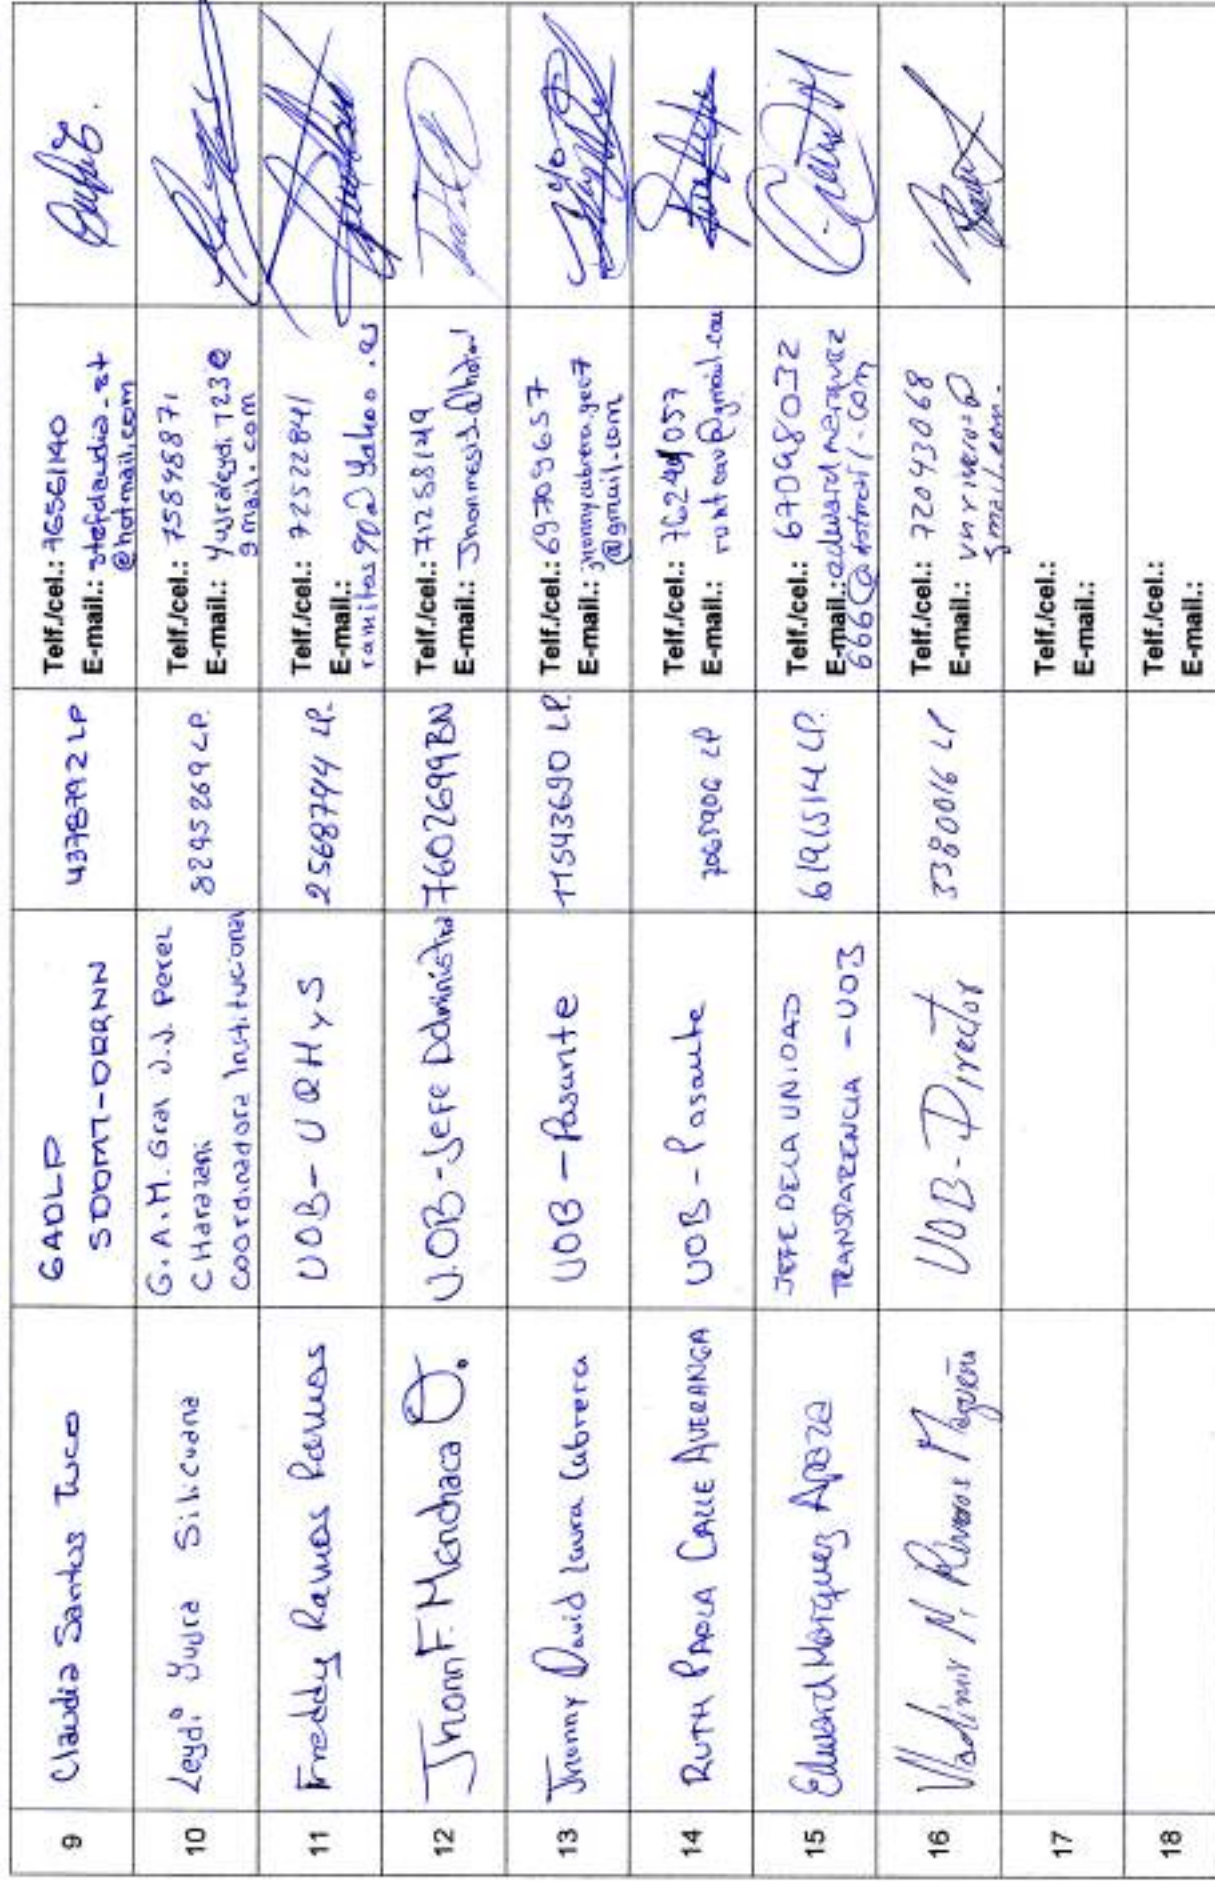 9
Claudia Santos Tuco
GADLP
SDDMT-DRRNN
4378792 LP
Telf./cel.: 76556140
E-mail.: stefdaudia_st
@hotmail.com
10
Leydi Yujra Silicuana
G.A.M. Gral J.J. Perez
CHarazani
Coordinadora Institucional
8295269 LP.
Telf./cel.: 75898871
E-mail.: Yujraleydi 123@
gmail.com
11
Freddy Ramos Ramos
UOB - URHyS
2568744 LP.
Telf./cel.: 72522841
E-mail.:
ramitos90@yahoo.es
12
Jhonn F. Mendiaca O.
U.OB - Jefe Administra
7602699 BN
Telf./cel.: 71258149
E-mail.:
13
Jhonny David Laura Cabrera
UOB - Pasante
11543690 LP.
Telf./cel.: 69709657
E-mail.: jhonnycabrera.geo7
@gmail.com
14
RUTH PAOLA CALLE AVERANGA
UOB - Pasante
LP
Telf./cel.:
E-mail.:
15
Edward Marquez Apaza
JEFE DE LA UNIDAD
TRANSPARENCIA - UOB
6191514 LP.
Telf./cel.: 67098032
E-mail.: edward marquez
666@hotmail.com
16
Vladimir N. Riveros
UOB - Director
3380016 LP
Telf./cel.: 72043068
E-mail.:
gmail.com.
17
Telf./cel.:
E-mail.:
18
Telf./cel.:
E-mail.: